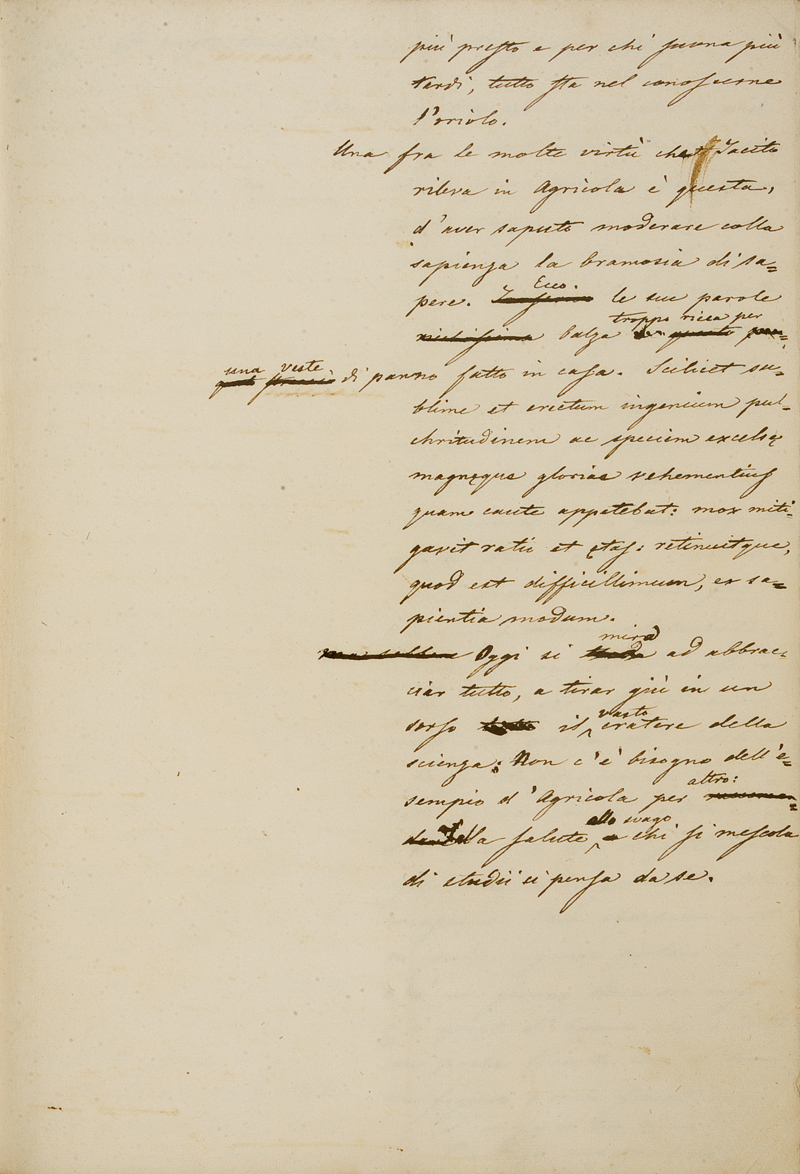 più presto e per chi suona più
tardi, tutto sta nel conoscerne
l'oriolo.
Una fra le molte virtù che Tacito
rileva in Agricola è questa,
d'aver saputo moderare colla
sapienza la bramosia di sa=
pere. Ecco. le sue parole
richissima balza troppo ricca per questo
una veste di panno fatto in casa. Scilicet su=
blime et erectum ingenium pul=
chritudinem ac speciem excelsę
magnęque gloriae vehementius
quam caute appetebat: mox miti=
gavit ratio et ętas: retinuitque,
quod est difficillimum, ex sa=
pientia modum.
Oggi si mira ad abbrac=
ciar tutto, a tirar giù in un
sorso il vasto cratere della
scienza; Non c'è bisogno dell'e=
sempio d'Agricola per altro:
la salute allo svago chi si mescola
di studii ci pensa da se.